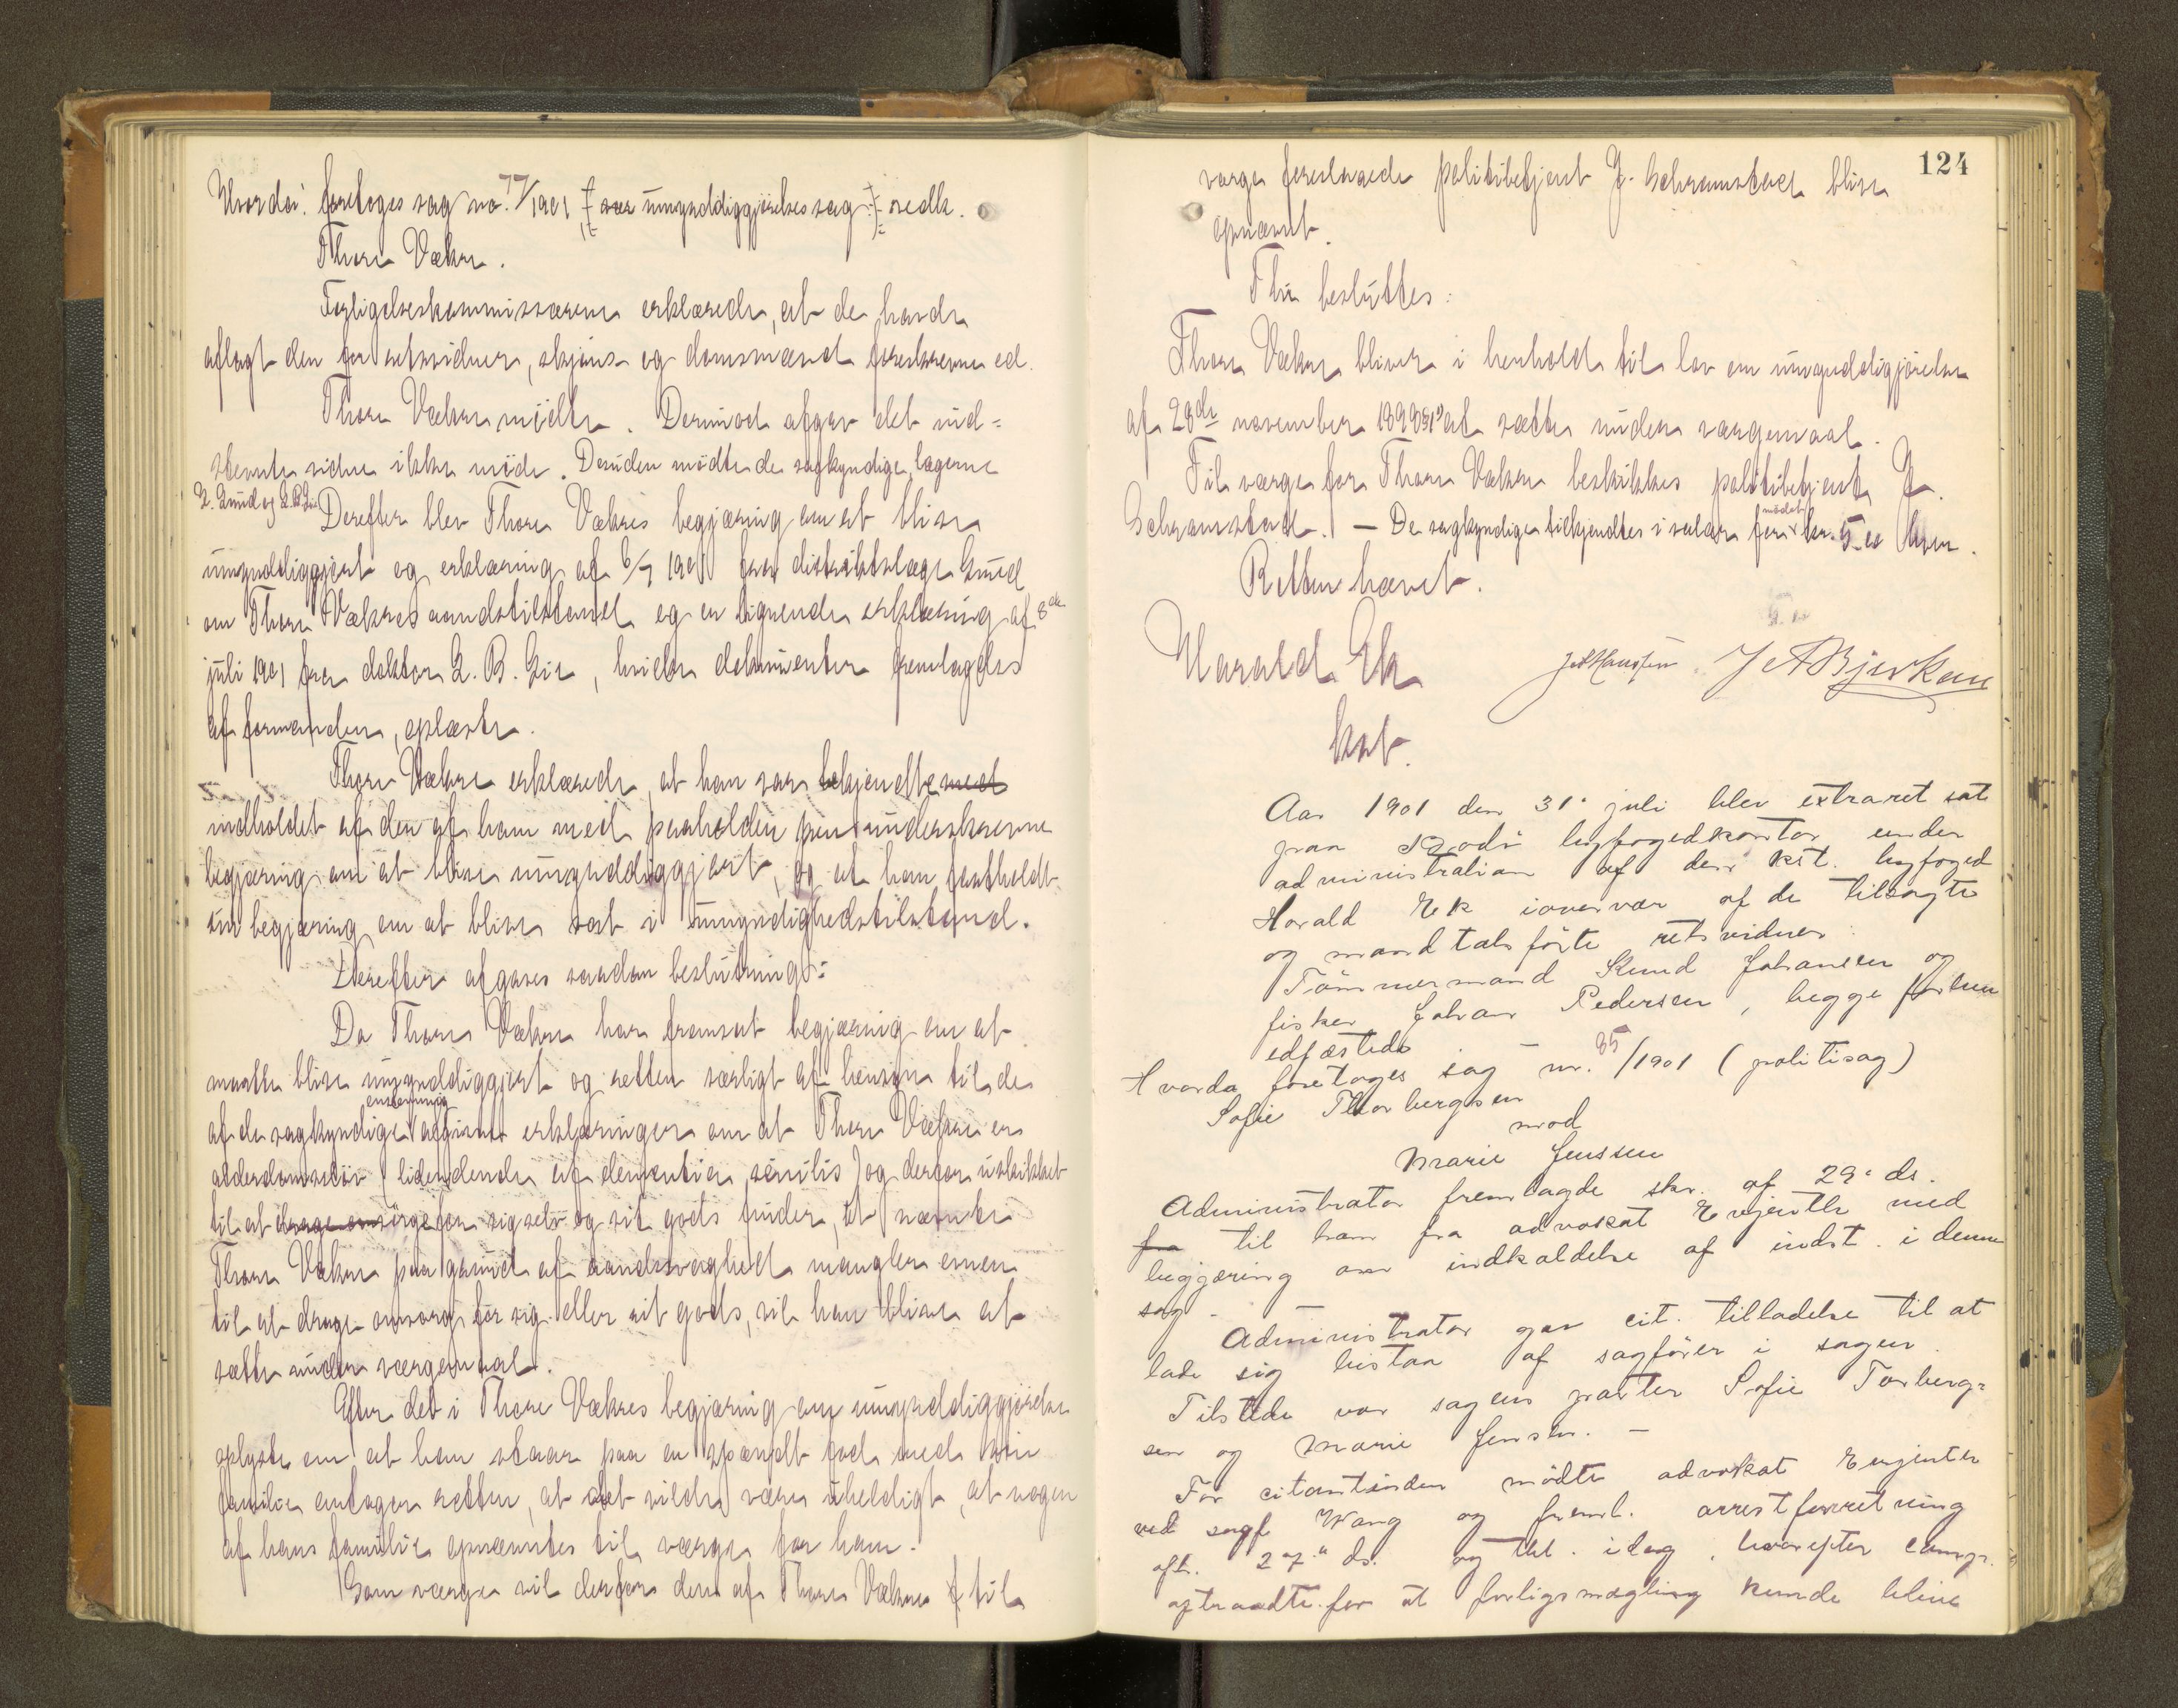 Hvorda: foretoges sag no. 77/1901 (umyndiggjørelsessag) vedk.
Thore Vækre.
Forligelseskommissærerne erklærede, at de havde
aflagt den for retsvidner, skjøns- og domsmænd foreskrevne ed.
Thore Vækre mødte. Derimod afgav det ind-
stevnte vidne ikke møde. Desuden mødte de sagkyndige, lægerne
Derefter blev Thore Vækres begjæring om at blive
umyndiggjort og erklæring af 6/7 1901 fra distriktslæge
om Thore Vækres aandstilstand og en lignende erklæring af 8de
juli 1901 fra doktor L. B. Lie, hvilke dokumenter fremlagdes
af formanden, oplæste.
Thore Vækre erklærede, at han var bekjendt med
indholdet af den af ham med paaholden pen underskrevne
begjæring om at blive umyndiggjort, og at han fastholdt
sin begjæring om at blive sat i umyndighedstilstand.
Derefter afgaves saadan beslutning:
Da Thore Vækre har fremsat begjæring om at
maatte blive umyndiggjort og retten særligt af hensyn til de
enstemmig
af de sagkyndige afgivne erklæringer om at Thore Vækre er
alderdomssløv (lidende af dementia senilis) og derfor uskikket
til at drage om sørge for sig selv og sit gods finder, at nævnte
Thore Vækre paa grund af aandssvaghed mangler evnen
til at drage omsorg for sig eller sit gods, vil han blive at
sætte under værgemaal.
Efter det i Thore Vækres begjæring om umyndiggjørelse
oplyste om at han staar paa en spændt fod med sin
familie antager retten, at det vilde være uheldigt, at nogen
af hans familie opnævntes til værge for ham.
Som værge vil derfor den af Thore Vækre til
124
værge foreslaaede politibetjent J. Schramstad blive
opnævnt.
Thi besluttes:
Thore Vækre bliver i henhold til lov om umyndiggjørelse
af 28de november 1898 § 1 at sætte under værgemaal.
Til værge for Thore Vækre beskikkes politibetjent J.
Schramstad. – De sagkyndige tilkjendtes i salær for mødet kr. 5.00 hver.
Retten hævet.
Harald Ek
kst.
Joh Hansen J A Bjerkan
Aar 1901 den 31. juli blev extraret sat
paa Bodø byfogedkontor under
administration af den kst. byfoged
Harald Ek i overvær af de tilsagte
og mandtalsførte retsvidner:
Tömmermand Knud Johansen og
fisker Johan Pedersen, begge forhen
edfæstede –
Hvorda foretoges sag nr. 85/1901 (politisag)
Sofie Thorbergsen
mod
Marie Jenssen
Administrator fremlagde skr. af 29. ds.
fra til ham fra advokat Erjenth med
begjæring om indkaldelse af indst. i denne
sag –
Administrator gav cit. tilladelse til at
lade sig bistaa af sagfører i sagen.
Tilstede var sagens parter Sofie Torberg-
sen og Marie Jensen. –
For citantinden mödte advokat
ved sagf. Wang og freml. arrestforretning
aft. 27. ds. og tkl. idag, hvorefter comp.
aftraadte for at forligsmægling kunde blive